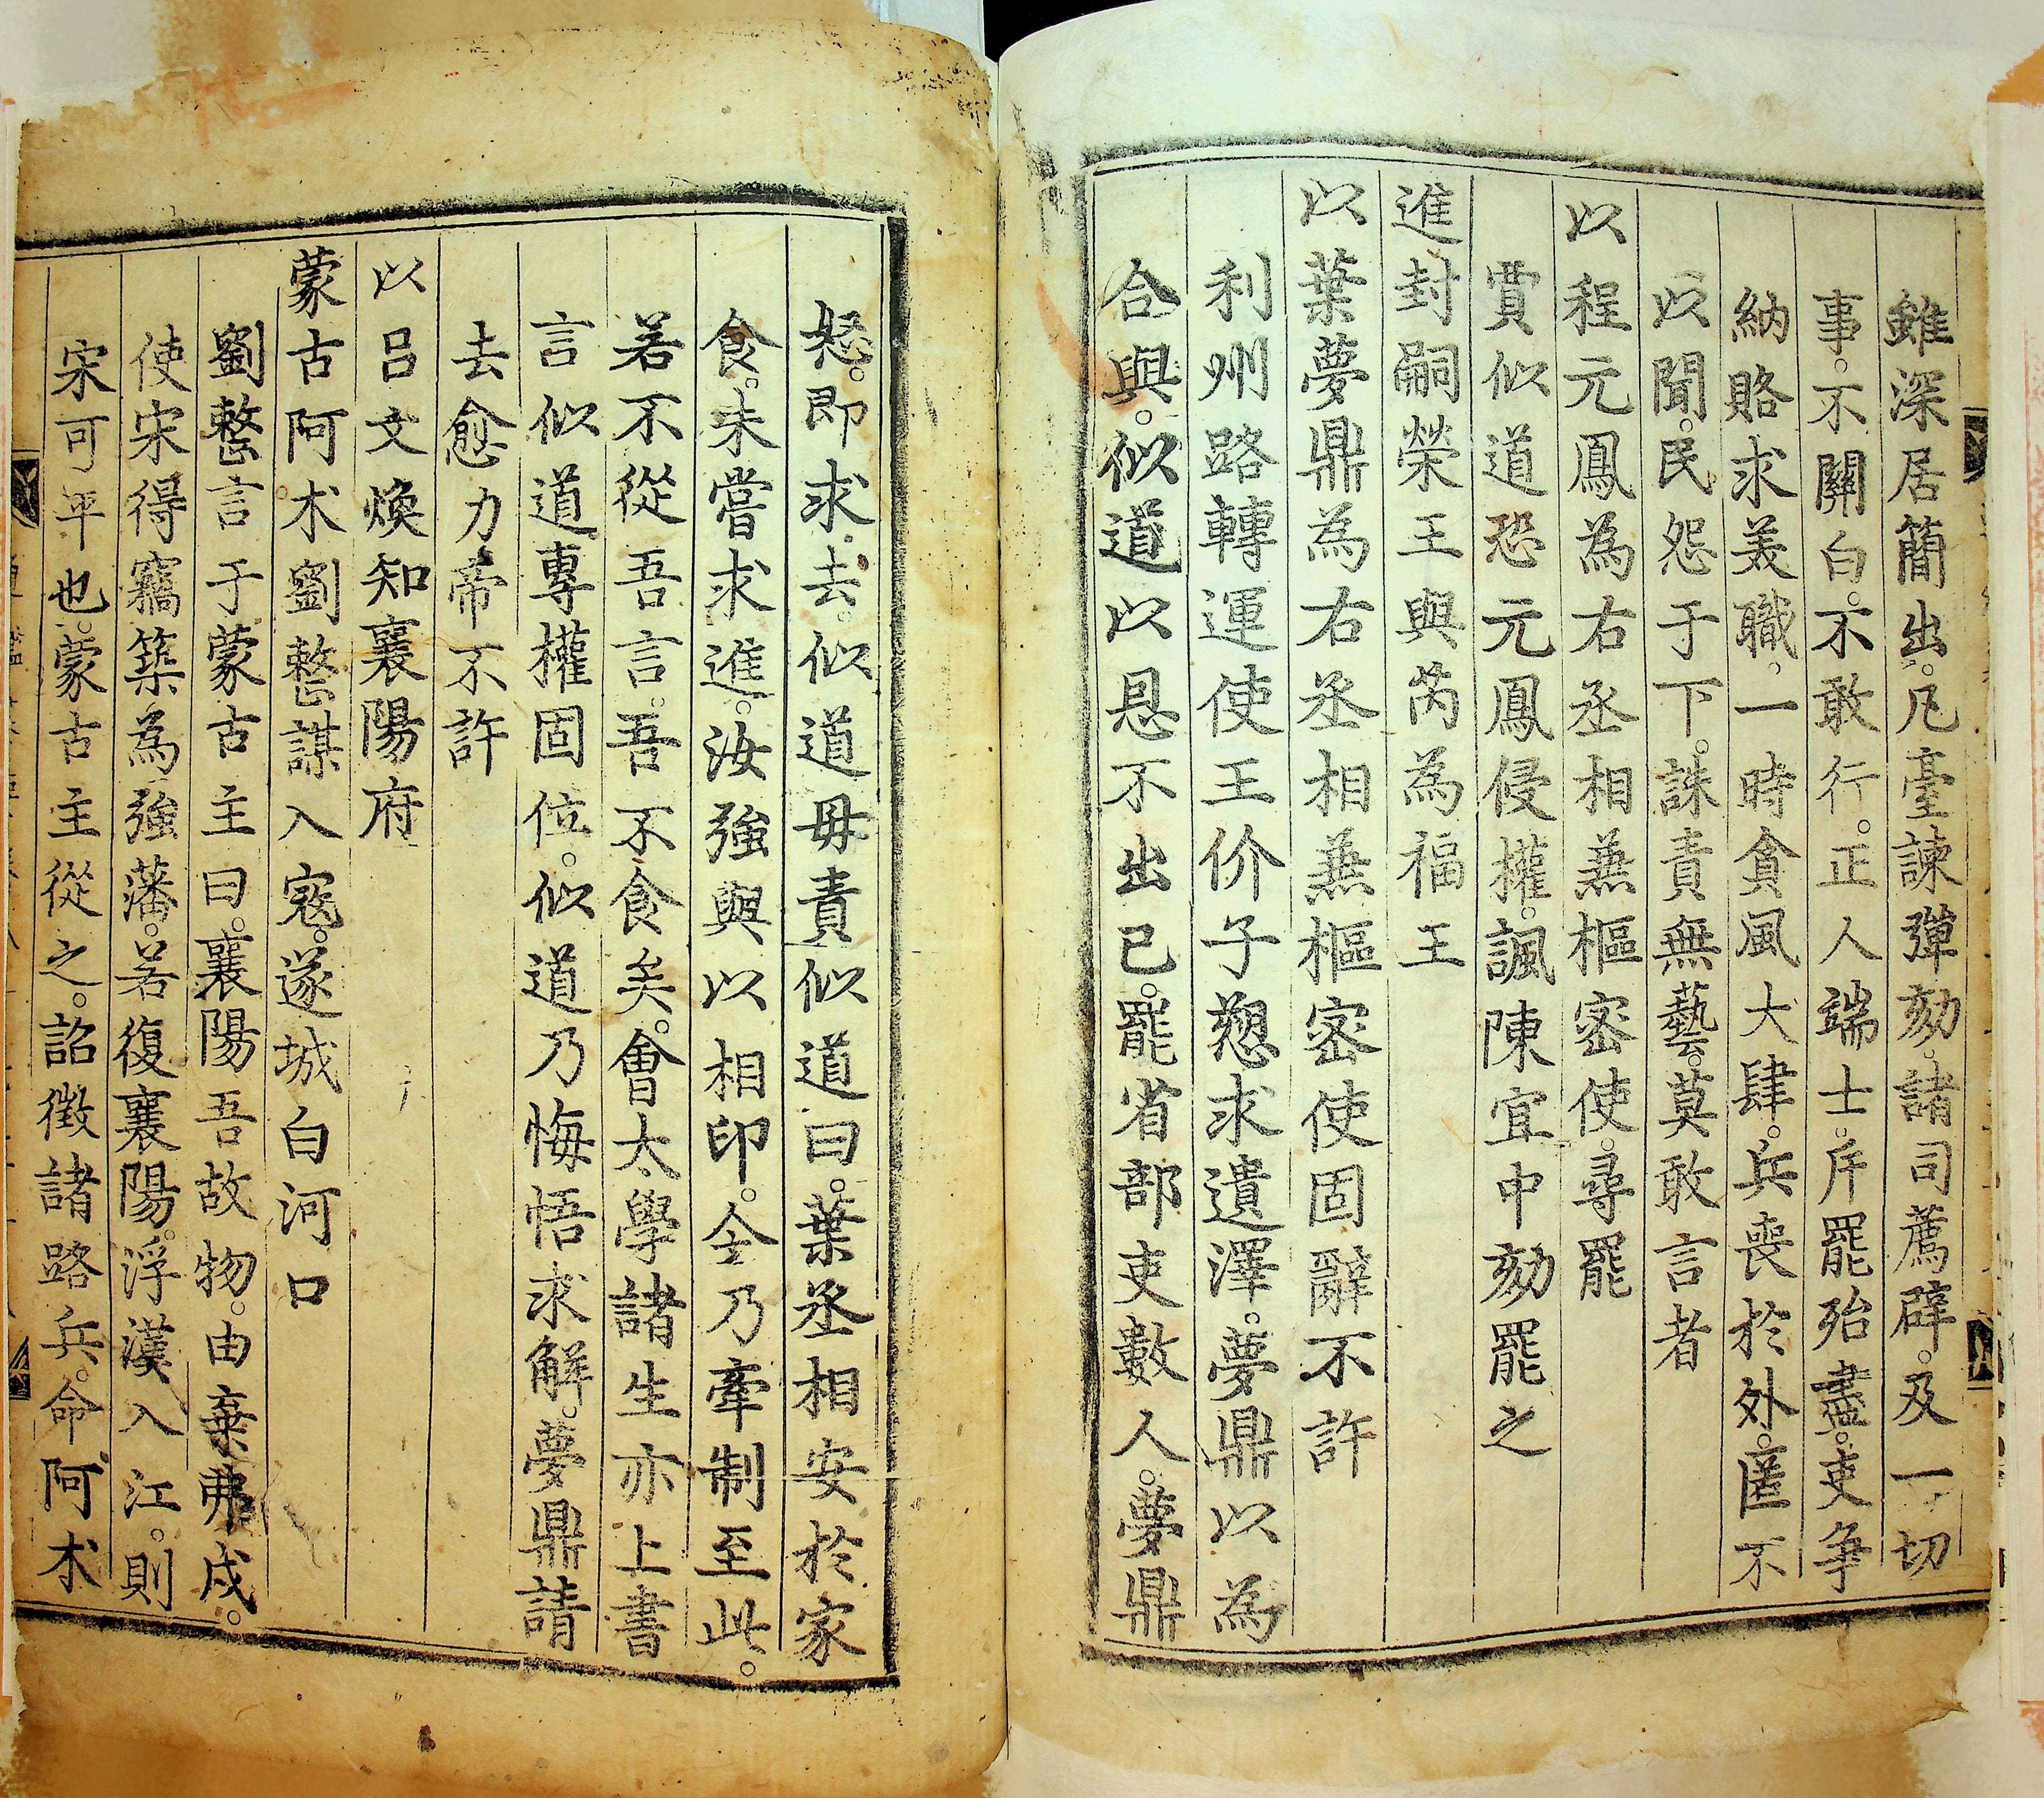 雖深居簡出。凡臺諫彈劾。諸司薦辟。及一切
事。不關白。不敢行。正人端士。斥罷殆盡。吏爭
納賂求美職。一時貪風大肆。兵喪於外。匿不
以聞。民怨于下。誅責無藝。莫敢言者
以程元鳳為右丞相兼樞密使。尋罷
賈似道恐元鳳侵權。諷陳宜中劾罷之
進封嗣榮王與芮為福王
以葉夢鼎為右丞相兼樞密使固辭不許
利州路轉運使王价子愬求遺澤。夢鼎以為
合與。似道以恩不出已。罷省部吏數人。夢鼎
怒。即求去。似道毋責似道曰。葉丞相安於家
食。未嘗求進。汝強與以相印。今乃牽制至此。
若不從吾言。吾不食矣。會太學諸生亦上書
言似道專權固位。似道乃悔悟求解。夢鼎請
去愈力帝不許
以呂文煥知襄陽府
蒙古阿术劉整謀入寇。遂城白河口
劉整言于蒙古主曰。襄陽吾故物。由棄弗戍。
使宋得竊築為強藩。若復襄陽。浮漢入江。則
宋可平也。蒙古主從之。詔徵諸路兵。命阿术